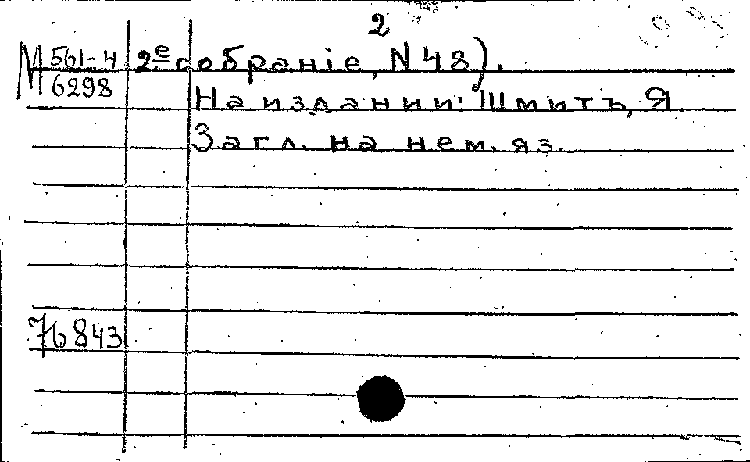 2
М 561-4 2е собраніе, N 48).
6298
На издании: Шмитъ, Я.
Загл. на нем. яз.
76843